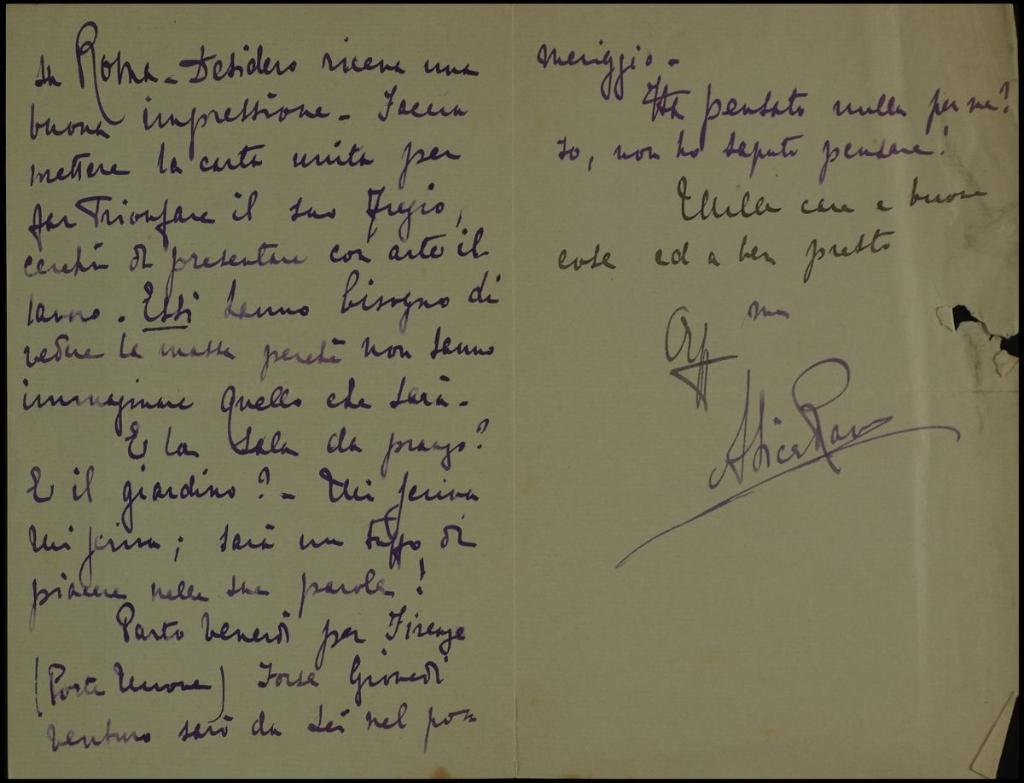 da Roma - Desidero riceva una
buona impressione - Faccia
mettere la carta unita per
far trionfare il suo fregio,
cerchi di presentare con arte il
lavoro. Essi hanno bisogno di
vedere la massa perchè non sanno
immaginare quello che sarà -
E la sala da pranzo?
E il giardino? - Mi scriva
mi scriva; sarà un tuffo di
piacere nella sua parola!
Parto Venerdì per Firenze
(Poste Unione) Forse Giovedì
venturo sarò da Lei nel po=
meriggio -
Ha pensato nulla per me?
Io, non ho saputo pensare!
Mille care e buone
cose ed a ben presto
Aff ma
Alice